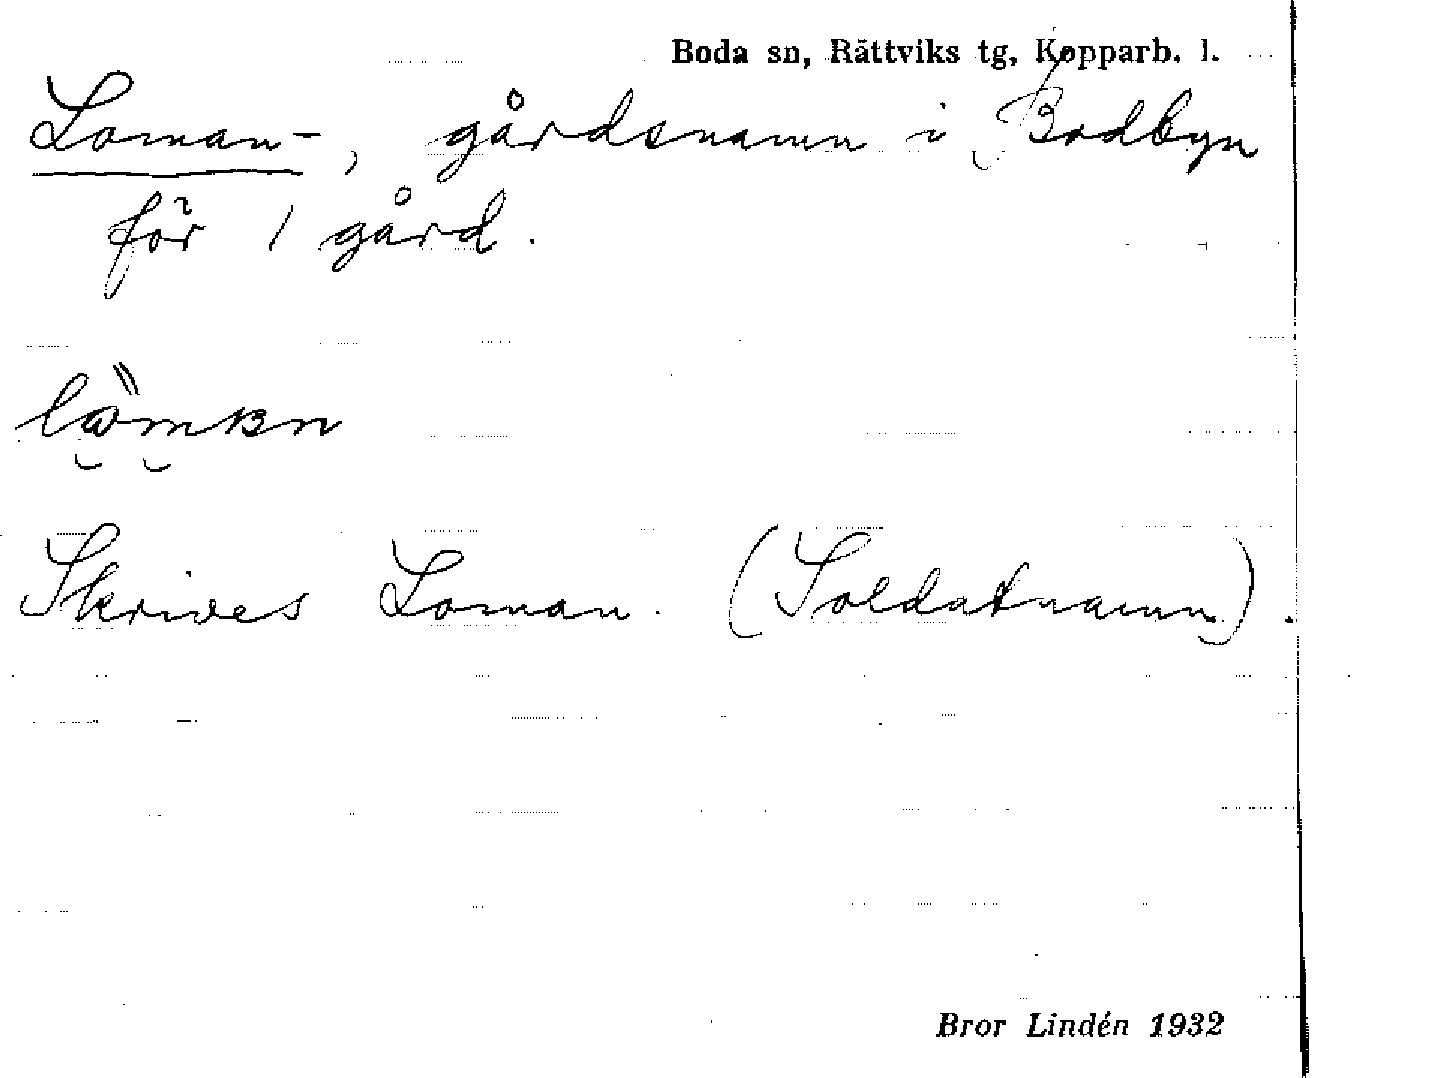 Boda sn, Rättviks tg, Kopparb. l.
Loman-, gårdsnamn i Bodbyn
för 1 gård.
Skrives Loman. (Soldatnamn).
Bror Lindén 1932